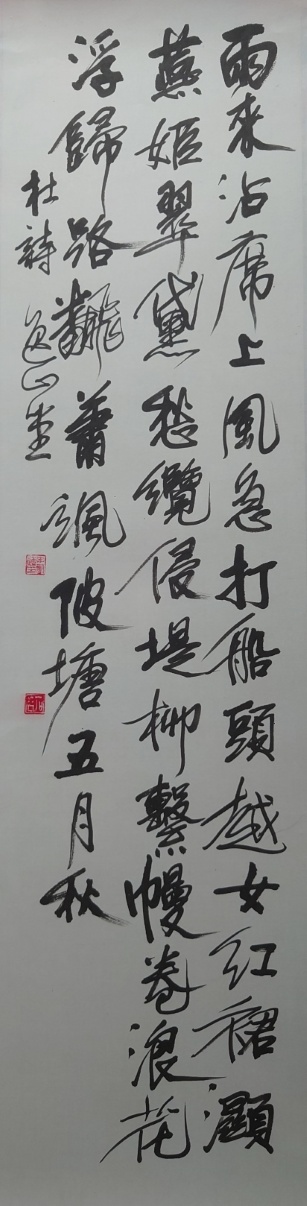 雨來沾席上風急打船頭越女紅裙濕
燕姬翠黛愁纜侵堤柳繫幔卷浪花
浮歸路飜蕭颯陂塘五月秋
杜詩